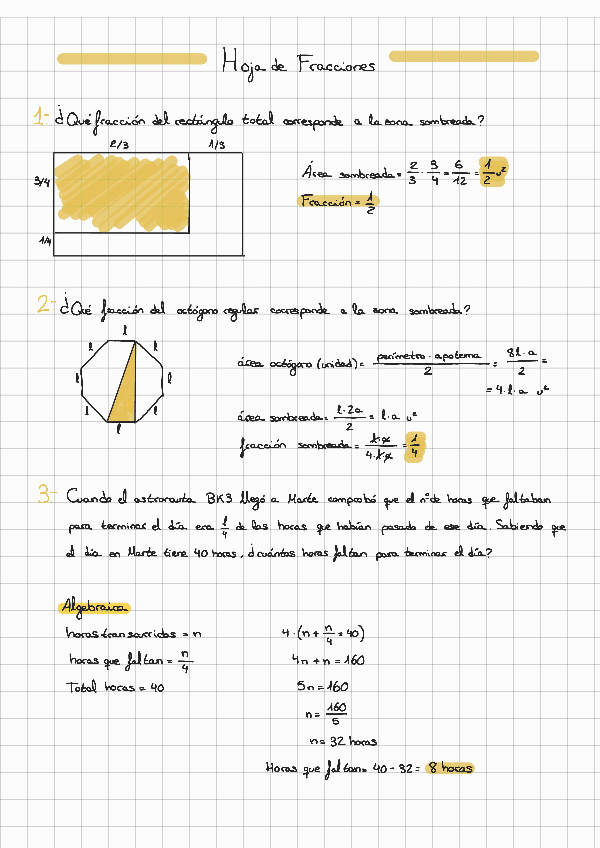 Hoja de Fracciones
1- ¿Qué fracción del rectángulo total corresponde a la zona sombreada?
2/3 1/3
3/4
1/4
Área sombreada = 2/3 · 3/4 = 6/12 = 1/2 u²
Fracción = 1/2
2- ¿Qué fracción del octógono regular corresponde a la zona sombreada?
l
l l
l l
l l
l
área octógono (unidad) = perímetro · apotema / 2 = 8l · a / 2 =
= 4 · l · a u²
área sombreada = l · 2a / 2 = l · a u²
fracción sombreada = l · a / 4 · l · a = 1/4
3- Cuando el astronauta BK3 llegó a Marte comprobó que el nº de horas que faltaban
para terminar el día era 1/4 de las horas que habían pasado de ese día. Sabiendo que
el día en Marte tiene 40 horas, ¿cuántas horas faltan para terminar el día?
Algebraica
horas transcurridas = n
horas que faltan = n/4
Total horas = 40
4 · (n + n/4 = 40)
4n + n = 160
5n = 160
n = 160/5
n = 32 horas
Horas que faltan = 40 - 32 = 8 horas